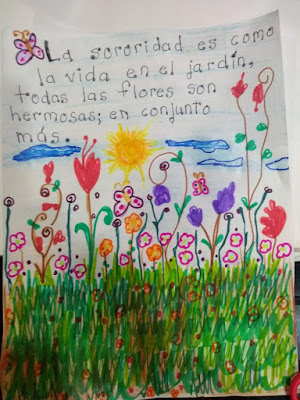 La sororidad es como
la vida en el jardín,
todas las flores son
hermosas; en conjunto
más.